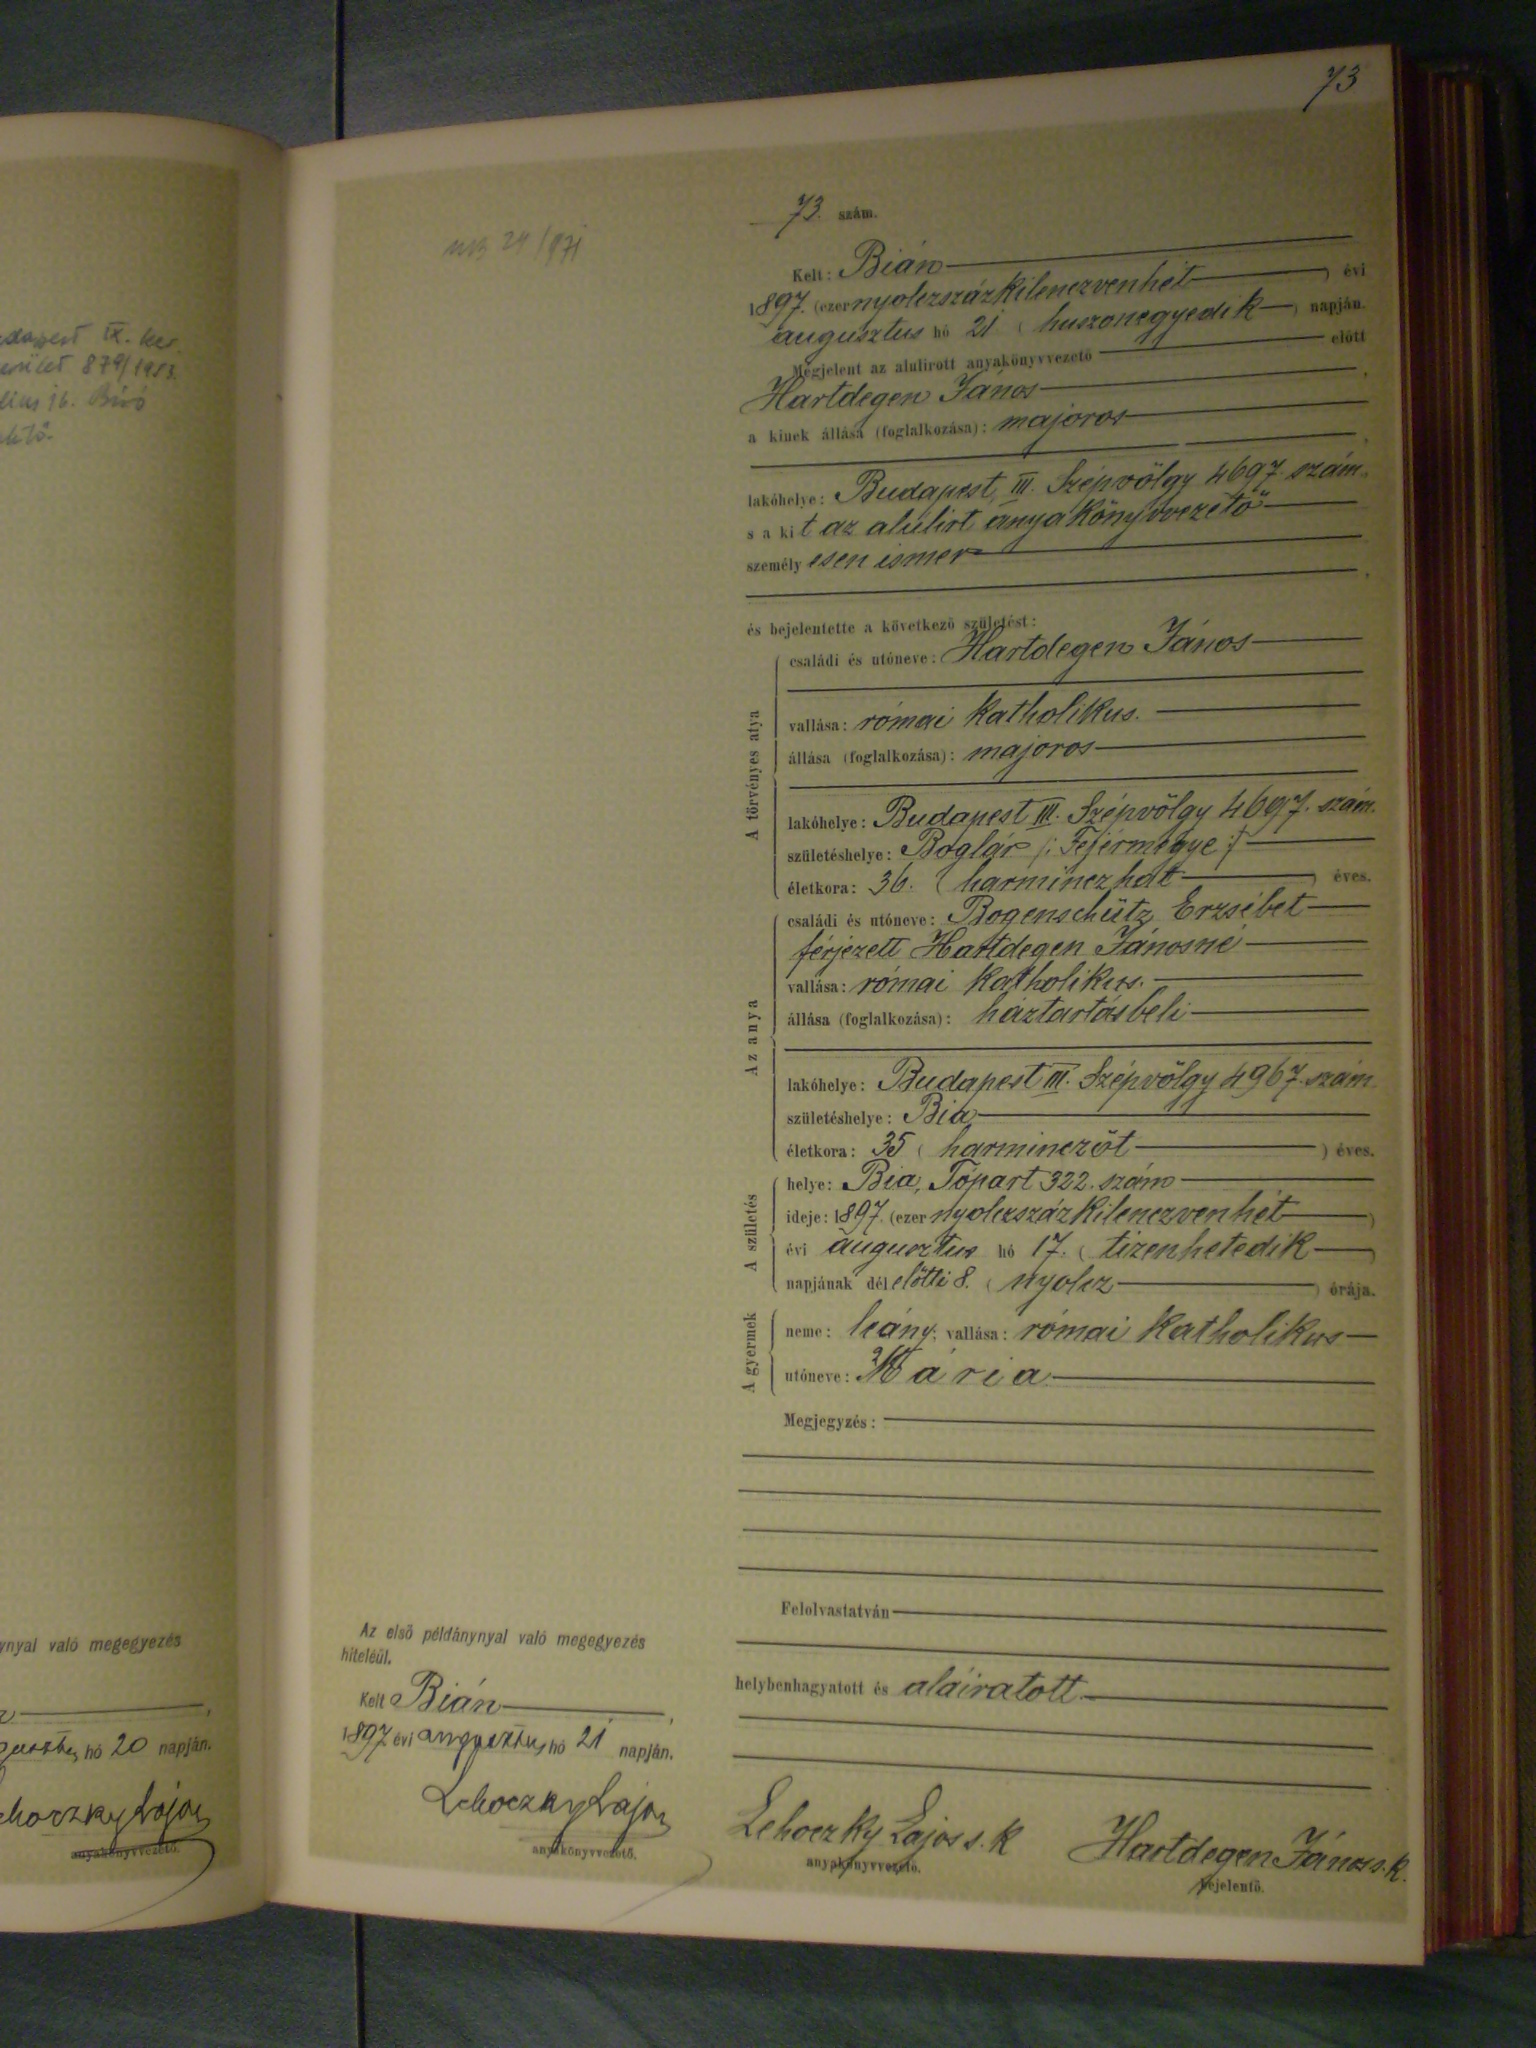 73
73. szám.
Kelt: Bián
1897. (ezer nyolczszázkilenczvenhét) évi
augusztus hó 21 (huszonegyedik) napján.
Megjelent az alulirott anyakönyvvezető előtt
Hartdegen János,
a kinek állása (foglalkozása): majoros
,
lakóhelye: Budapest, III. Szépvölgy 4697. szám.,
s a kit az alulirt anyakönyvvezető
személyesen ismer
,
és bejelentette a következő születést:
A törvényes atya
családi és utóneve: Hartdegen János
vallása: római katholikus.
állása (foglalkozása): majoros
lakóhelye: Budapest III. Szépvölgy 4697. szám.
születéshelye: Boglár /: Fejérmegye :/
életkora: 36. (harminczhat) éves.
Az anya
családi és utóneve: Bogenschütz Erzsébet
férjezett Hartdegen Jánosné
vallása: római katholikus.
állása (foglalkozása): háztartásbeli
lakóhelye: Budapest III. Szépvölgy 4967. szám
születéshelye: Bia
életkora: 35 (harminczöt) éves.
A születés
helye: Bia, Tópart 322. szám
ideje: 1897. (ezer nyolczszázkilenczvenhét)
évi augusztus hó 17. (tizenhetedik)
napjának délelőtti 8. (nyolcz) órája.
A gyermek
neme: leány; vallása: római katholikus
utóneve: Mária
Megjegyzés:
Felolvastatván
helybenhagyatott és aláiratott
Lehoczky Lajos s. k
anyakönyvvezető.
Hartdegen János s. k.
bejelentő.
Az első példánynyal való megegyezés
hiteléül.
Kelt Bián,
1897 évi augusztus hó 21 napján.
Lehoczky Lajos
anyakönyvvezető.
IX. ker.
879/1953.
16. Bíró
való megegyezés
,
hó 20 napján.
Lajos
anyakönyvvezető.